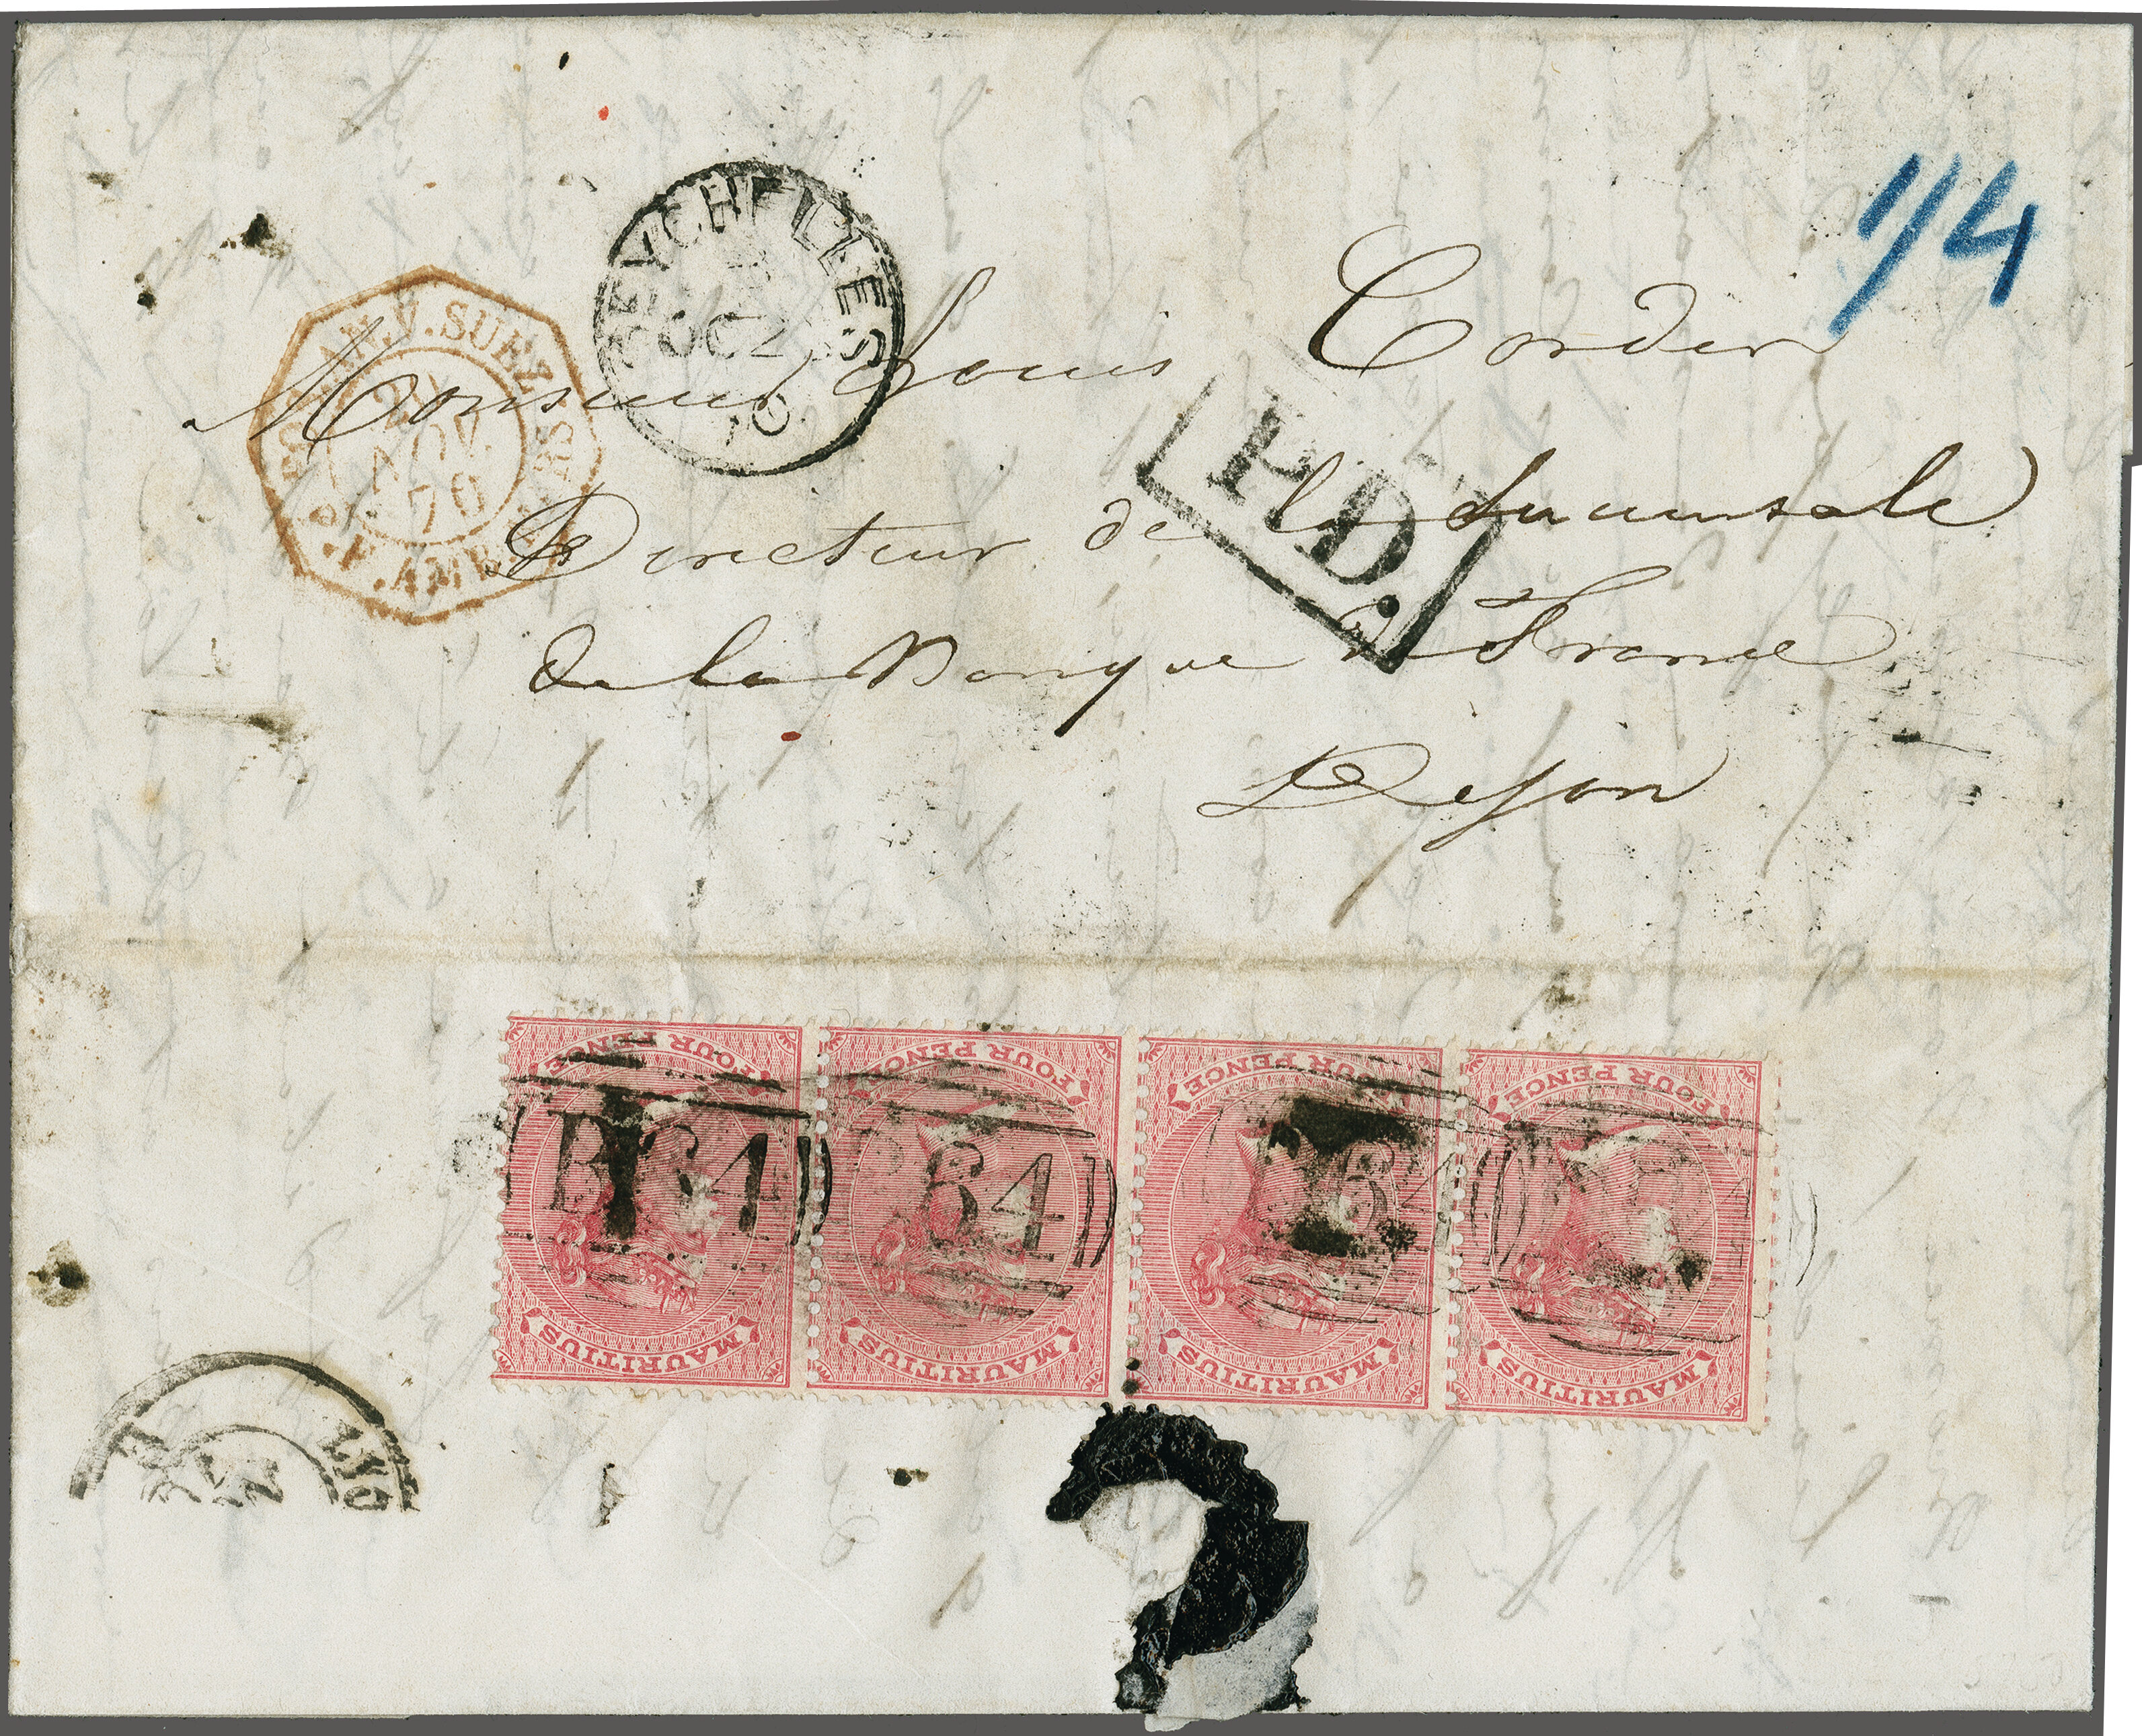 1/4
SEYCHELLES
OC 2
70
Monsieur Louis Cordier
Directeur de la Succursale
de la Banque de France
Dijon
V. SUEZ
21
NOV.
70
P.D.
FOUR PENCE
FOUR PENCE
FOUR PENCE
FOUR PENCE
B64
B64
B64
MAURITIUS
MAURITIUS
MAURITIUS
MAURITIUS
LYO